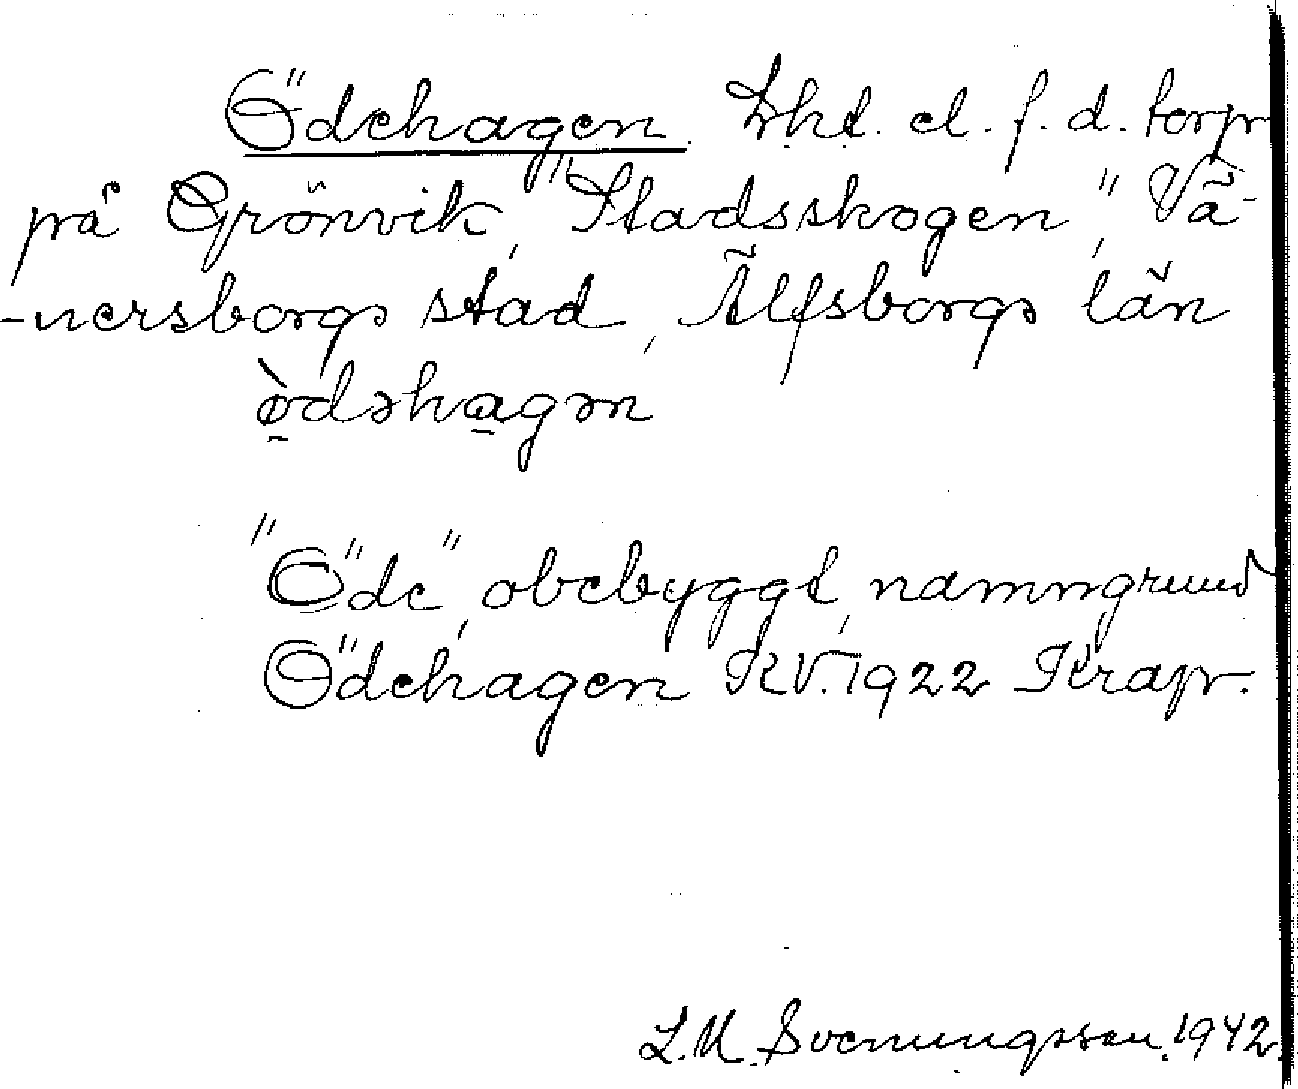 Ödehagen. Lht. el. f. d. torp
på Grönvik, "Stadsskogen", Vä-
-nersborgs stad, Älfsborgs län
ø̀dəhagən
"Öde", obebyggt, namngrund
Ödehagen KV. 1922 Krap.
L. M. Svenungsson. 1942.